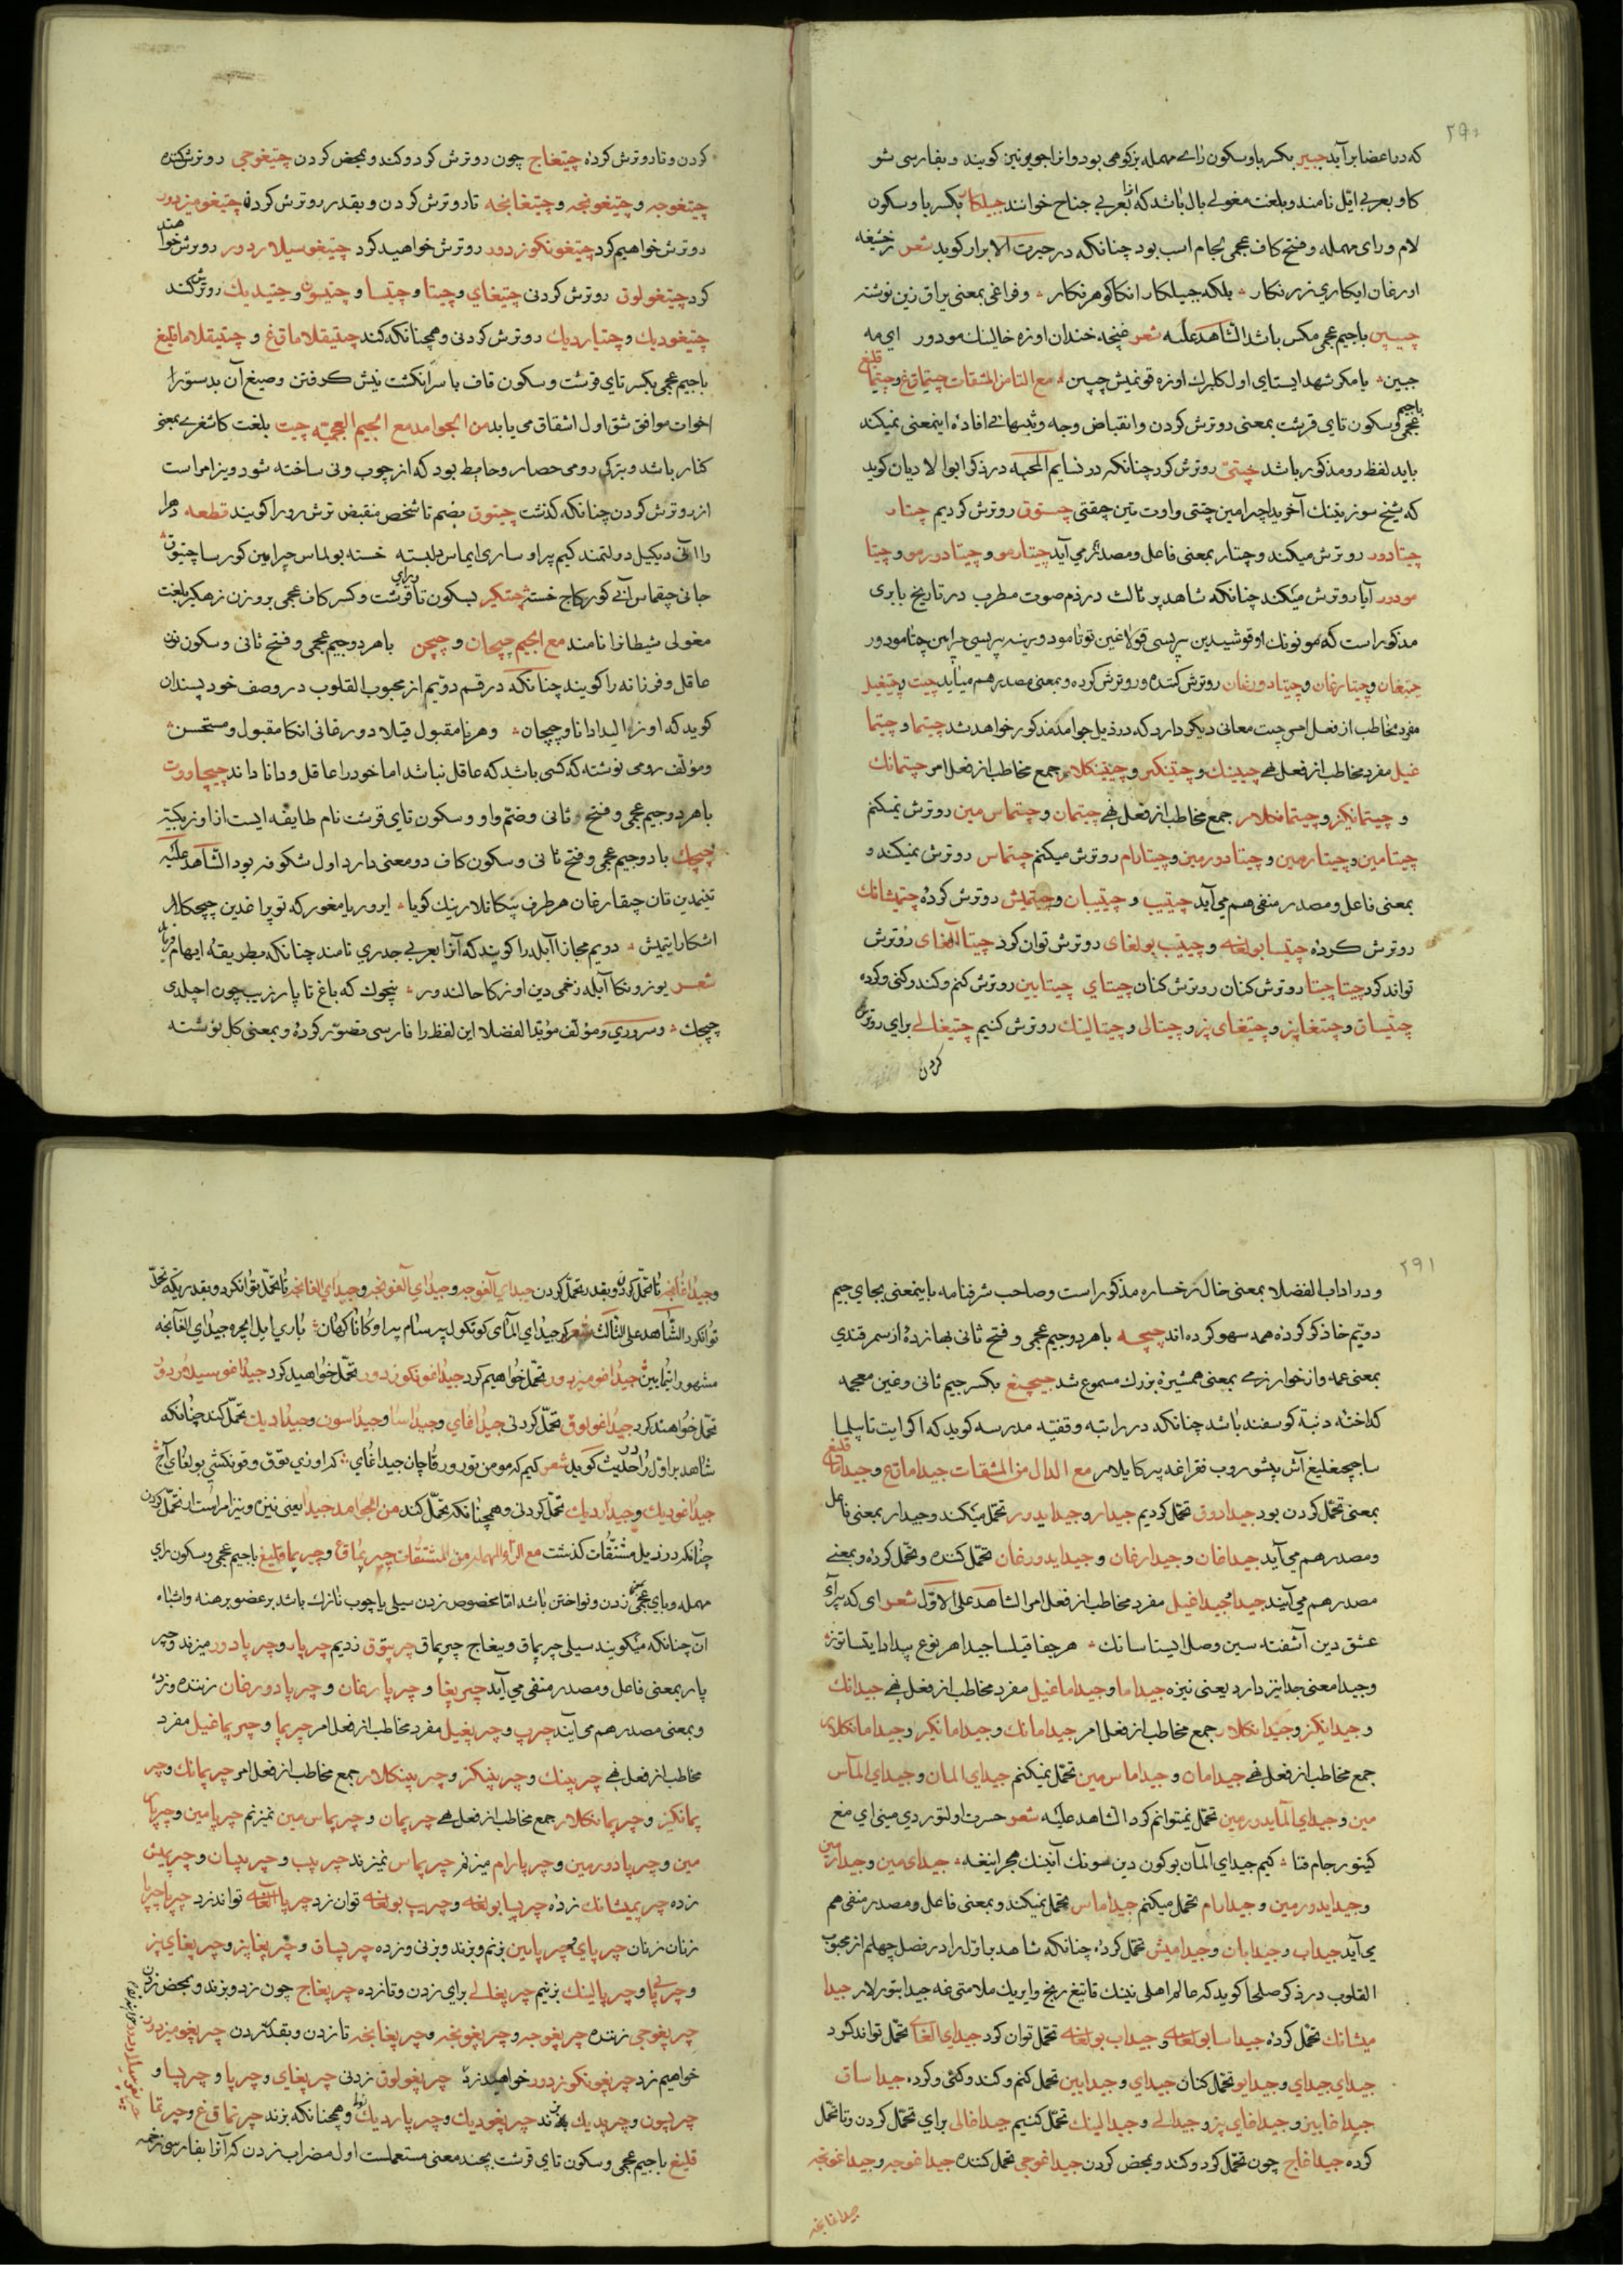 ۲۹۰
که در اعضا برآید جبیر بکسر با و سکون رای مهمله بزکوهی بود و انرا جویرنین کویند و بفارسی شو
کاو و بعربی ایّل نامند و بلغت مغولی بال باشد که انرا بعربی جناح خوانند جیلکار بکسر با و سکون
لام و رای مهمله و فتح کاف عجمی لجام اسب بود چنانکه در حیرت الابرار کوید شعر
اورغان ایکاری زرنکار بلکه جیلکار انکا کوهرنکار و فراغی بمعنی یراق زین نوشته
چیبین باجیم عجمی مکس باشد الشاهد علیه شعر غنچهٔ خندان اوزه خالینك مودور ای مه
جبین یا مکر شهد ایستای اول کلبرك اوزه قونمیش چیبین مع التا من المشقات چیتماق غ و چیتما قلیغ
باجیم عجمی و سکون تای قرشت بمعنی روترش کردن و انقباض وجه و بتنهائی افادهٔ اینمعنی نمیکند
باید لفظ رو مذکور باشد چیتتی روترش کرد چنانکه در نسایم المحبه در ذکر ابوالادیان کوید
که شیخ سوزینینك آخریدا چرامین چتتی و اوت تین چقتی چتتوق روترش کردیم چتار
چیتادور روترش میکند و چتار بمعنی فاعل و مصدر نیز می آید چیتارمو و چیتادورمو و چیتا
مودور آیا روترش میکند چنانکه شاهد بر ثالث در ذم صوت مطرب در تاریخ بابری
مذکور است که مونونك اوقوشیدین بریسی قولاغین توتامودور ینه بریسی چرامین چتامودور
چیتغان و چیتارغان و چیتادورغان روترش کننده و روترش کرده و بمعنی مصدر هم میاید چیت و چیتغیل
مفرد مخاطب از فعل امر چیت معانی دیکر دارد که در ذیل جوامد مذکور خواهد شد چیتما و چیتما
غیل مفرد مخاطب از فعل نهی چیتینك و چتینکیز و چیتینکلار جمع مخاطب از فعل امر چیتمانك
و چیتمانکیز و چیتمانکلار جمع مخاطب از فعل نهی چیتمان و چیتماس مین روترش نمیکنم
چیتامین و چیتارمین و چیتادورمین و چیتارام روترش میکنم چیتماس روترش نمیکند و
بمعنی فاعل و مصدر منفی هم می آید چیتیب و چیتیبان و چیتمیش روترش کرده چتمیشانك
روترش کرده چیتسا بولغه و چیتیب بولغای روترش توان کرد چیتا آلغای روترش
تواند کرد چیتا چیتا روترش کنان روترش کنان چیتای چیتایین روترش کنم و کند و کنی و کرده
چتیساق و چیتغاییز و چیتغای یز و چیتالی و چیتالینك روترش کنیم چیتغالی برای روترش
کردن
کردن و تا روترش کرده چیتغاج چون روترش کرد و کند و بمحض کردن چیتغوجی روترش کننده
چیتغوجه و چیتغونجه و چیتغانجه تا روترش کردن و بقدر روترش کردن چیتغومیزدور
روترش خواهیم کرد چیتغونکوزدور روترش خواهید کرد چیتغوسیلاردور روترش خواهند
کرد چیتغولوق روترش کردنی چیتغای و چیتا و چیتسا و چتیسون و چتیدیك روترش کند
چتیغودیك و چتاردیك روترش کردنی و همچنانکه کند چتیقلاماق غ و چتیقلاماقلیغ
باجیم عجمی بکسر تای قرشت و سکون قاف با سر انکشت نیش کرفتن و صیغ آن بدستورا
اخوات موافق شق اول اشقاق می یابد من الجوامد مع الجیم العجمیّه چیت بلغت کاشغری بمعنی
کنار باشد و بترکی رومی حصار و حایط بود که از چوب و نی ساخته شود و نیز امر است
از روترش کردن چنانکه کذشت چیتوق بضم تا شخص منقبض ترش رو را کویند قطعه
را آتی دیکیل دولتمند کیم پر او ساری ایماس دلبسته خسته بولماس چرامین کورسا چتیوق
جانی چقماس آنی کورکاج خسته چتکیر بسکون تا قرشت و کسر کاف عجمی و رای بروزن زهکیر بلغت
مغولی شیطانرا نامند مع الجیم چیچان و چیچن باهر دو جیم عجمی و فتح ثانی و سکون نون
عاقل و فرزانه را کویند چنانکه در قسم دویم از محبوب القلوب در وصف خود پسندان
کوید که اوزالیدا دانا و چیچان و هر نامقبول قیلادورغانی انکا مقبول و مستحسن
و مؤلف رومی نوشته که کسی باشد که عاقل نباشد اما خود را عاقل و دانا داند چیچاووت
باهر دو جیم عجمی و فتح ثانی و ضم واو و سکون تای قرشت نام طایفه ایست از اوزبکیّه
چیچك با دو جیم عجمی و فتح ثانی و سکون کاف دو معنی دارد اول شکوفه بود الشاهد علیه
تینمدین قان چیقارغان هر طرف پیکانلارینك کویا ایرور یامغور که توپراغدین چیچکلار
آشکارا یتمیش دویم مجازا آبله را کویند که آنرا بعربی جدری نامند چنانکه بطریقهٔ ایهام
شعر یوزونکا آبله زخمی دین اوزکا حالدور نیچوك که باغ تا پار زیب چون اچلدی
چیچك و سروری و مؤلف مؤید الفضلا این لفظ را فارسی تصور کرده و بمعنی کل نوشته
۲۹۱
و در اداب الفضلا بمعنی خال رخساره مذکور است و صاحب شرفنامه باینمعنی بجای جیم
دویم خا ذکر کرده همه سهو کرده اند چیچه باهر دو جیم عجمی و فتح ثانی بهازده از سمرقندی
بمعنی عمه و از خوارزمی بمعنی همشیرهٔ بزرك مسموع شد چیچیغ بکسر جیم ثانی و غین معجمه
کداخته دنبهٔ کوسفند باشد چنانکه در راتبه وقفیّه مدرسه کوید که اکر ایت تاپیلسا
ساجیچغلیغ آش پیشوروب فقراغه بیرکایلار مع الدال من المشقات جیداماق غ و جیداما قلیغ
بمعنی تحمّل کردن بود جیدادوق تحمّل کردیم جیدار و جیدایدور تحمّل میکند و جیدار بمعنی فاعل
و مصدر هم می آید جیداغان و جیدارغان و جیدایدورغان تحمّل کننده و تحمّل کرده و بمعنی
مصدر هم می آیند جیدا و جیداغیل مفرد مخاطب از فعل امر الشاهد علی الاوّل شعر ای که
عشق دین آشفته سین وصل ایستاسانك هر جفا قیلسا جیدا هر نوع بیداد ایتسا توز
و جیدا معنی جدا نیز دارد یعنی نیزه جیداما و جیداماغیل مفرد مخاطب از فعل نهی جیدانك
و جیدانکیز و جیدانکلار جمع مخاطب از فعل امر جیدامانك و جیدامانکیز و جیدامانکلار
جمع مخاطب از فعل نهی جیدامان و جیداماس مین تحمّل نمیکنم جیدای المان و جیدای الماس
مین و جیدای المایدورمین تحمّل نمیتوانم کرد الشاهد علیه شعر حسرت اولتوردی مینی ای مغ
کیتور جام فنا کیم جیدای المان بوکون دین سونك آنینك هجرانیغه جیدای مین و جیدارمین
و جیدایدورمین و جیدارام تحمّل میکنم جیداماس تحمّل نمیکند و بمعنی فاعل و مصدر منفی هم
می آید جیداب و جیدابان و جیدامیش تحمّل کرده چنانکه شاهد بر اوّل را در فصل چهلم از محبوب
القلوب در ذکر صلحا کوید که عالم اهلی نینك قاتیغ رنج و ایریك ملامتی غه جیدابتورلار جیدا
میشانك تحمّل کرده جیداسا بولغه و جیداب بولغه تحمّل توان کرد جیدای الغا تحمّل تواند کرد
جیدای جیدای و جیدایو تحمّل کنان جیدای و جیدایین تحمّل کنم و کند و کنی و کرده جیداساق
جیداغاییز و جیداغای یز و جیدالی و جیدالینك تحمّل کنیم جیداغالی برای تحمّل کردن و تا تحمّل
کرده جیداغاج چون تحمّل کرد و کند و بمحض کردن جیداغوجی تحمّل کننده جیداغوجه و جیداغونجه
جیداغانجه
و جیداغانجه تا تحمّل کردن و بقدر تحمّل کردن جیدای آلغوجه و جیدای آلغونجه و جیدای الغانجه تا تحمّل تواند کرد و بقدریکه تحمّل
تواند کرد الشاهد علی الثالث شعر
مشهور ایتمایین جیداغومیزدور تحمّل خواهیم کرد جیداغونکوزدور تحمّل خواهید کرد جیداغوسیلاردور
تحمّل خواهند کرد جیداغولوق تحمّل کردنی جیداغای و جیداسا و جیداسون و جیدادیك تحمّل کند چنانکه
شاهد بر اوّل را در حدیث کوید شعر کیم که مومن تورور قاچان جیداغای کر اوزی توق و قونکشی بولغای آچ
جیداغودیك و جیداردیك تحمّل کردنی و همچنانکه تحمّل کند من الجوامد جیدا یعنی نیزه و نیز امر است از تحمّل کردن
چنانکه در ذیل مشتقّات کذشت مع الراء المهمله من المشتقّات چیرپماق غ و چیرپما قلیغ باجیم عجمی و سکون رای
مهمله و بای عجمی زدن و نواختن باشد امّا مخصوص زدن سیلی یا چوب نازك باشد بر عضو برهنه و اشباه
آن چنانکه میکویند سیلی چرپماق و ییغاج چیرپماق چرپتوق زدیم چرپار و چرپادور میزند و چیر
پار بمعنی فاعل و مصدر منفی می آید چیرپغا و چرپارغان و چرپادورغان زننده و زده
و بمعنی مصدر هم می آیند چیرپ و چرپغیل مفرد مخاطب از فعل امر چرپما و چیرپماغیل مفرد
مخاطب از فعل نهی چرپینك و چرپینکیز و چرپینکلار جمع مخاطب از فعل امر چرپمانك و چیر
پمانکیز و چرپمانکلار جمع مخاطب از فعل نهی چرپمان و چرپماس مین نمیزنم چرپامین و چرپار
مین و چرپادورمین و چرپارام میزنم چرپماس نمیزند چرپیب و چرپیبان و چرپمیش
زده چرپمیشانك زده چرپسا بولغه و چرپیب بولغه توان زد چرپا آلغه تواند زد چرپا چرپا
زنان زنان چرپای و چرپایین بزنم و بزند و بزنی و زده چرپساق و چرپغاییز و چرپغای یز
و چرپالی و چرپالینك بزنیم چرپغالی برای زدن و تا زده چرپغاج چون زد و بزند و بمحض زدن
چرپغوجی زننده چرپغوجه و چرپغونجه و چرپغانجه تا زدن و بقدر زدن چرپغومیزدور
خواهیم زد چرپغونکوزدور خواهید زد چرپغولوق زدنی چرپغای و چرپا و چرپسا و
چرپسون و چرپدیك بزند چرپغودیك و چرپاردیك زدنی و همچنانکه بزند چرتماق غ و چرتما
قلیغ باجیم عجمی و سکون تای قرشت بچند معنی مستعملست اول مضراب زدن که آنرا بفارسی زخمه